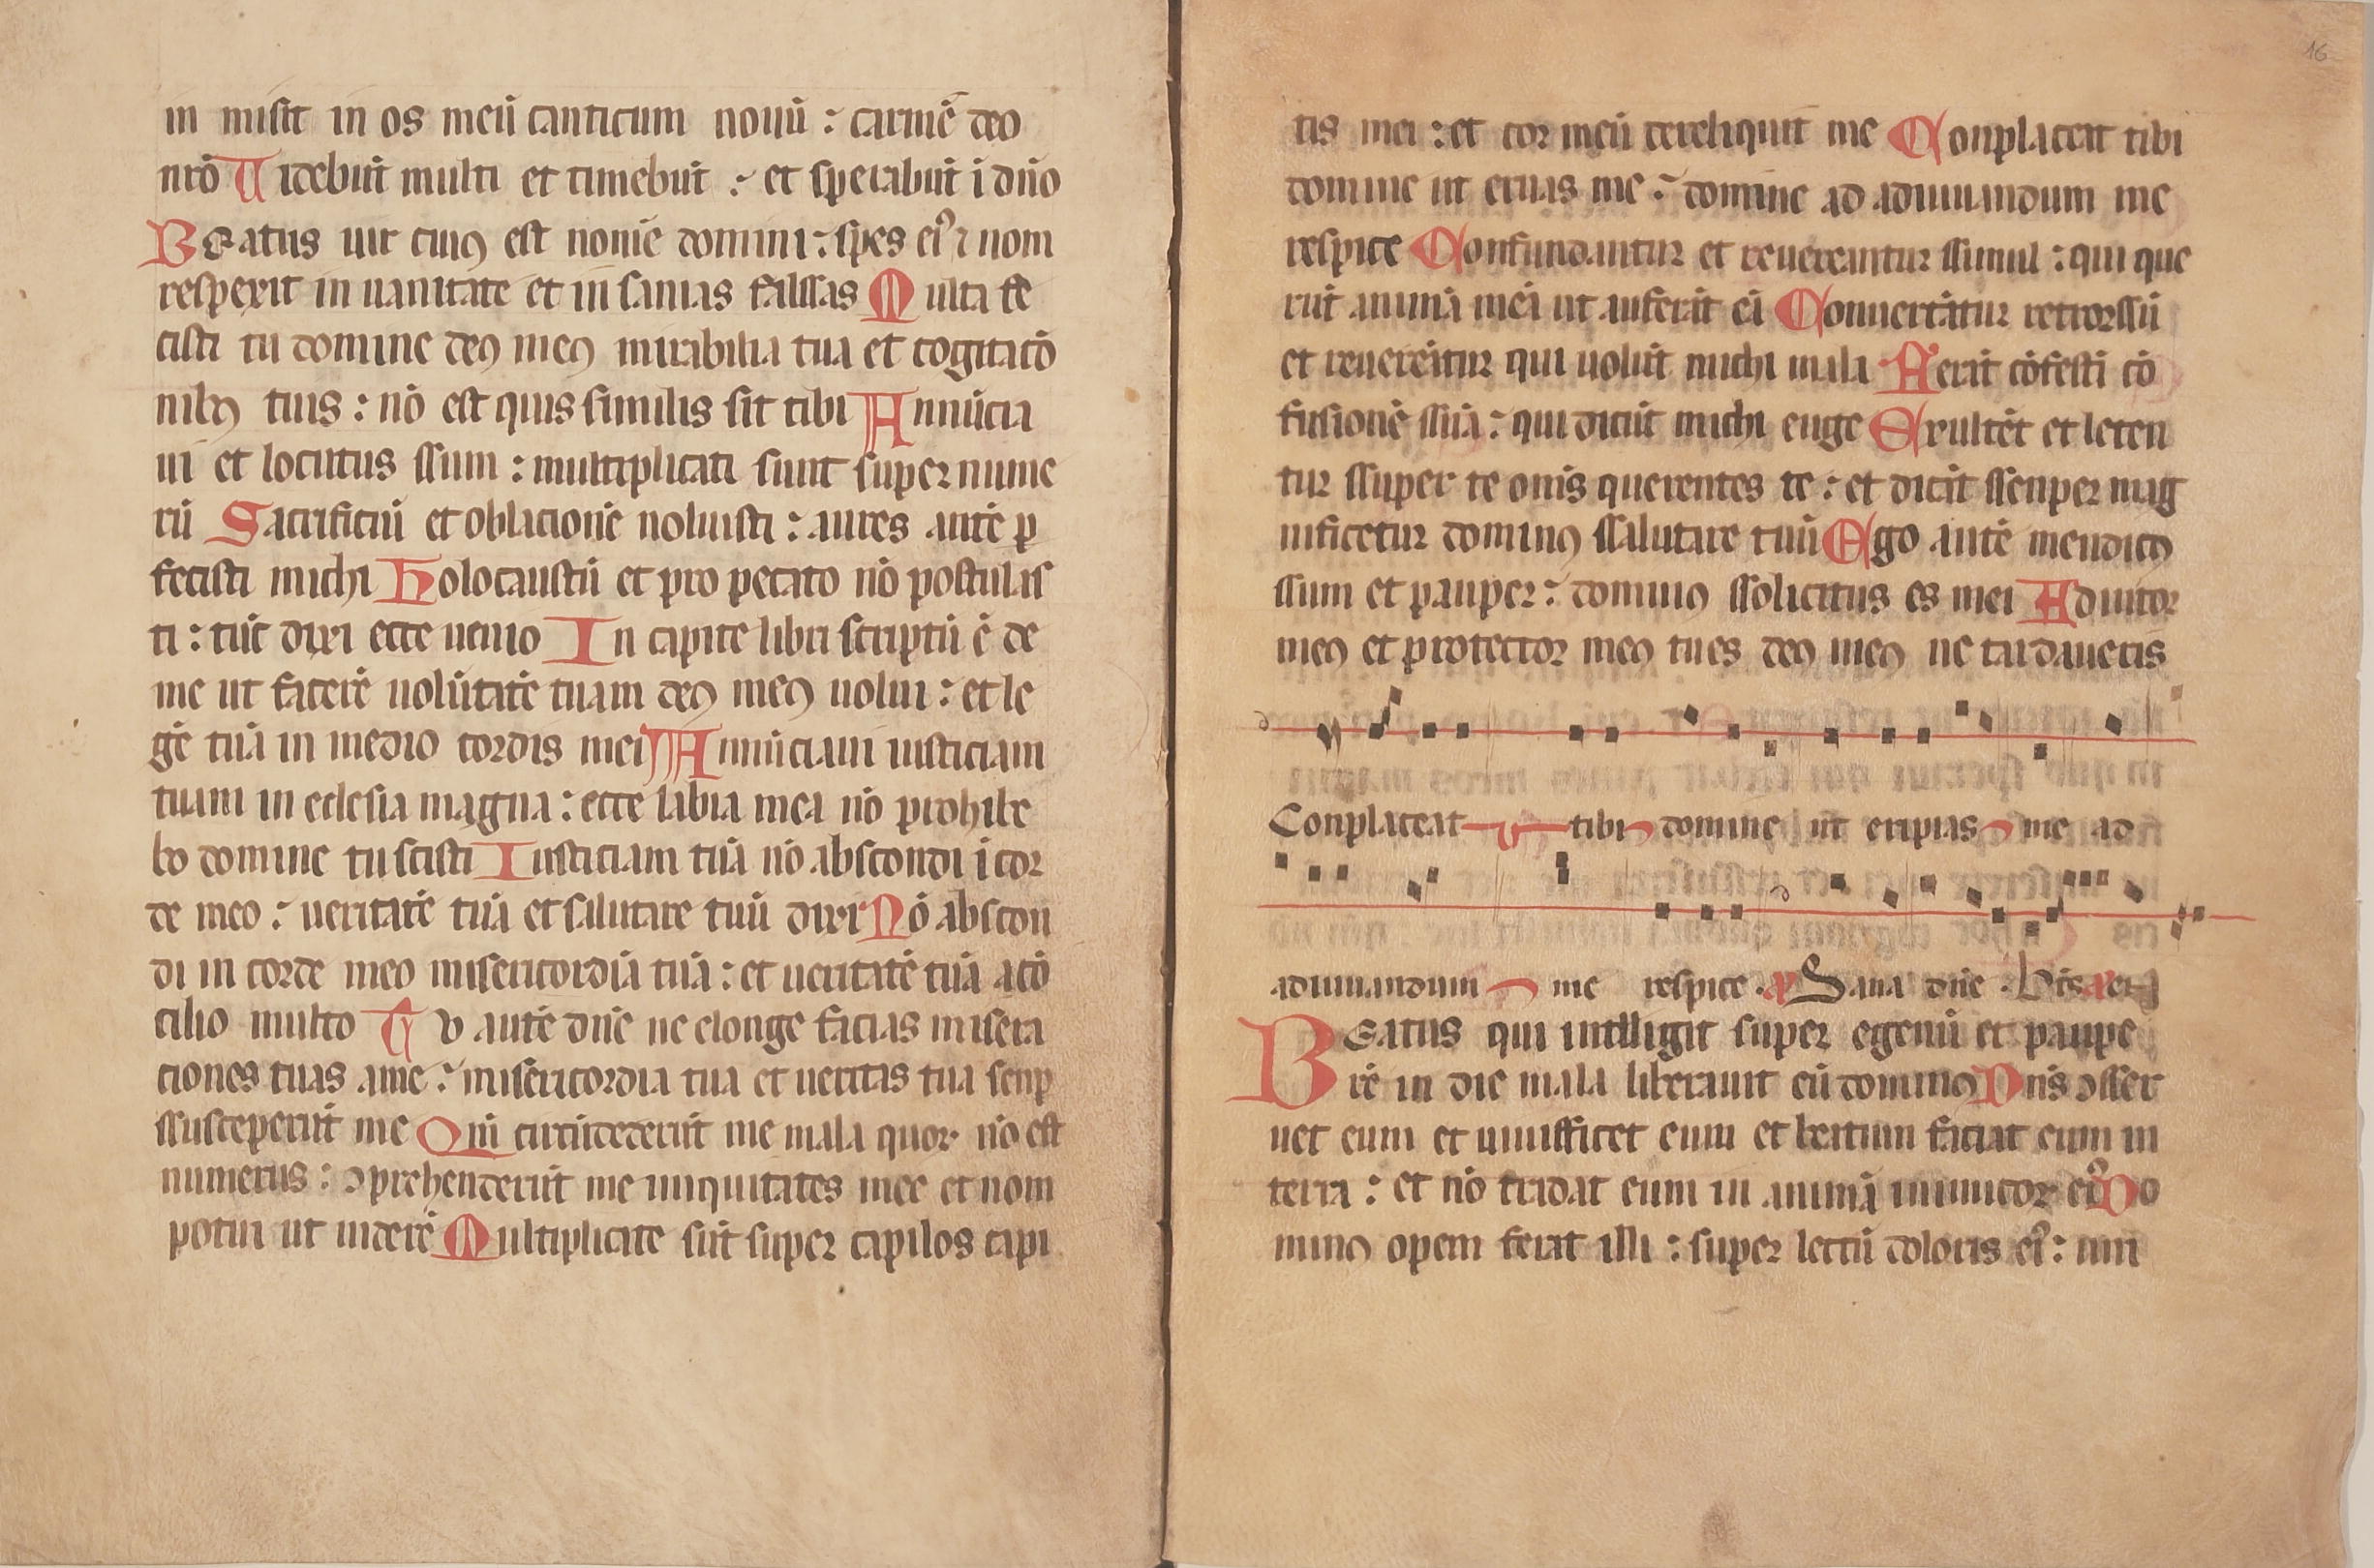 in misit in os meū canticum nouū : carmē deo
nrō Uidebūt multi et timebūt : et sperabūt ī dño
Beatus uir cuiꝰ est nomē domini : spes eiꝰ ⁊ nom
resperit in uanitate et in sanias falssas Multa fe
cisti tu domine deꝰ meꝰ mirabilia tua et cogitatō
nibꝰ tuis : nō est quis similis sit tibi Annūcia
ui et locutus ssum : multiplicati sunt super nume
rū Sacrificiū et oblacionē noluisti : aures autē ꝑ
fecisti michi Holocaustū et pro pecato nō postulas
ti : tūc dixi ecce uenio In capite libri scriptū ē de
me ut facerē uolūtatē tuam deꝰ meꝰ uolui : et le
gē tuā in medio cordis mei Annūciaui iusticiam
tuam in eclesia magna : ecce labia mea nō prohibe
bo domine tu scisti Iusticiam tuā nō abscondi ī cor
de meo : ueritatē tuā et salutare tuū dixi Nō abscon
di in corde meo misericordiā tuā : et ueritatē tuā a cō
cilio multo Tu autē dñe ne elonge facias misera
ciones tuas a me : misericordia tua et ueritas tua senꝑ
ssusceperūt me Qm̄ circūdederūt me mala quor nō est
numerus : ꝯprehenderūt me iniquitates mee et nom
potui ut uiderē Multiplicate sūt super capilos capi
16
tis mei : et cor meū dereliquit me Conplaceat tibi
domine ut eruas me : domine ad adiuuandum me
respice Confundantur et reuereantur ssimul : qui que
rūt animā meā ut auferāt eā Conuertātur retrorssū
et reuereātur qui uolūt michi mala Ferāt cōfesti cō
fusionē ssuā : qui dicūt michi euge Exultēt et leten
tur ssuper te onīs querentes te : et dicāt ssenper mag
nificetur dominꝰ ssalutare tuū Ego autē mendicꝰ
ssum et pauper : dominꝰ ssolicitus es mei Adiutor
meꝰ et protector meꝰ tu es deꝰ meꝰ ne tardaueris
Conplaceat tibi domine ut eripias me ad
adiuuandum me respice . Sana dñe
Beatus qui intlligit super egenū et paupe
rē in die mala liberauit eū dominꝰ Dñs ꝯsser
uet eum et uiuifficet eum et beatum faciat eum in
terra : et nō tradat eum in animā inimicor eiꝰ Do
minꝰ opem ferat illi : super lectū doloris eiꝰ : uni